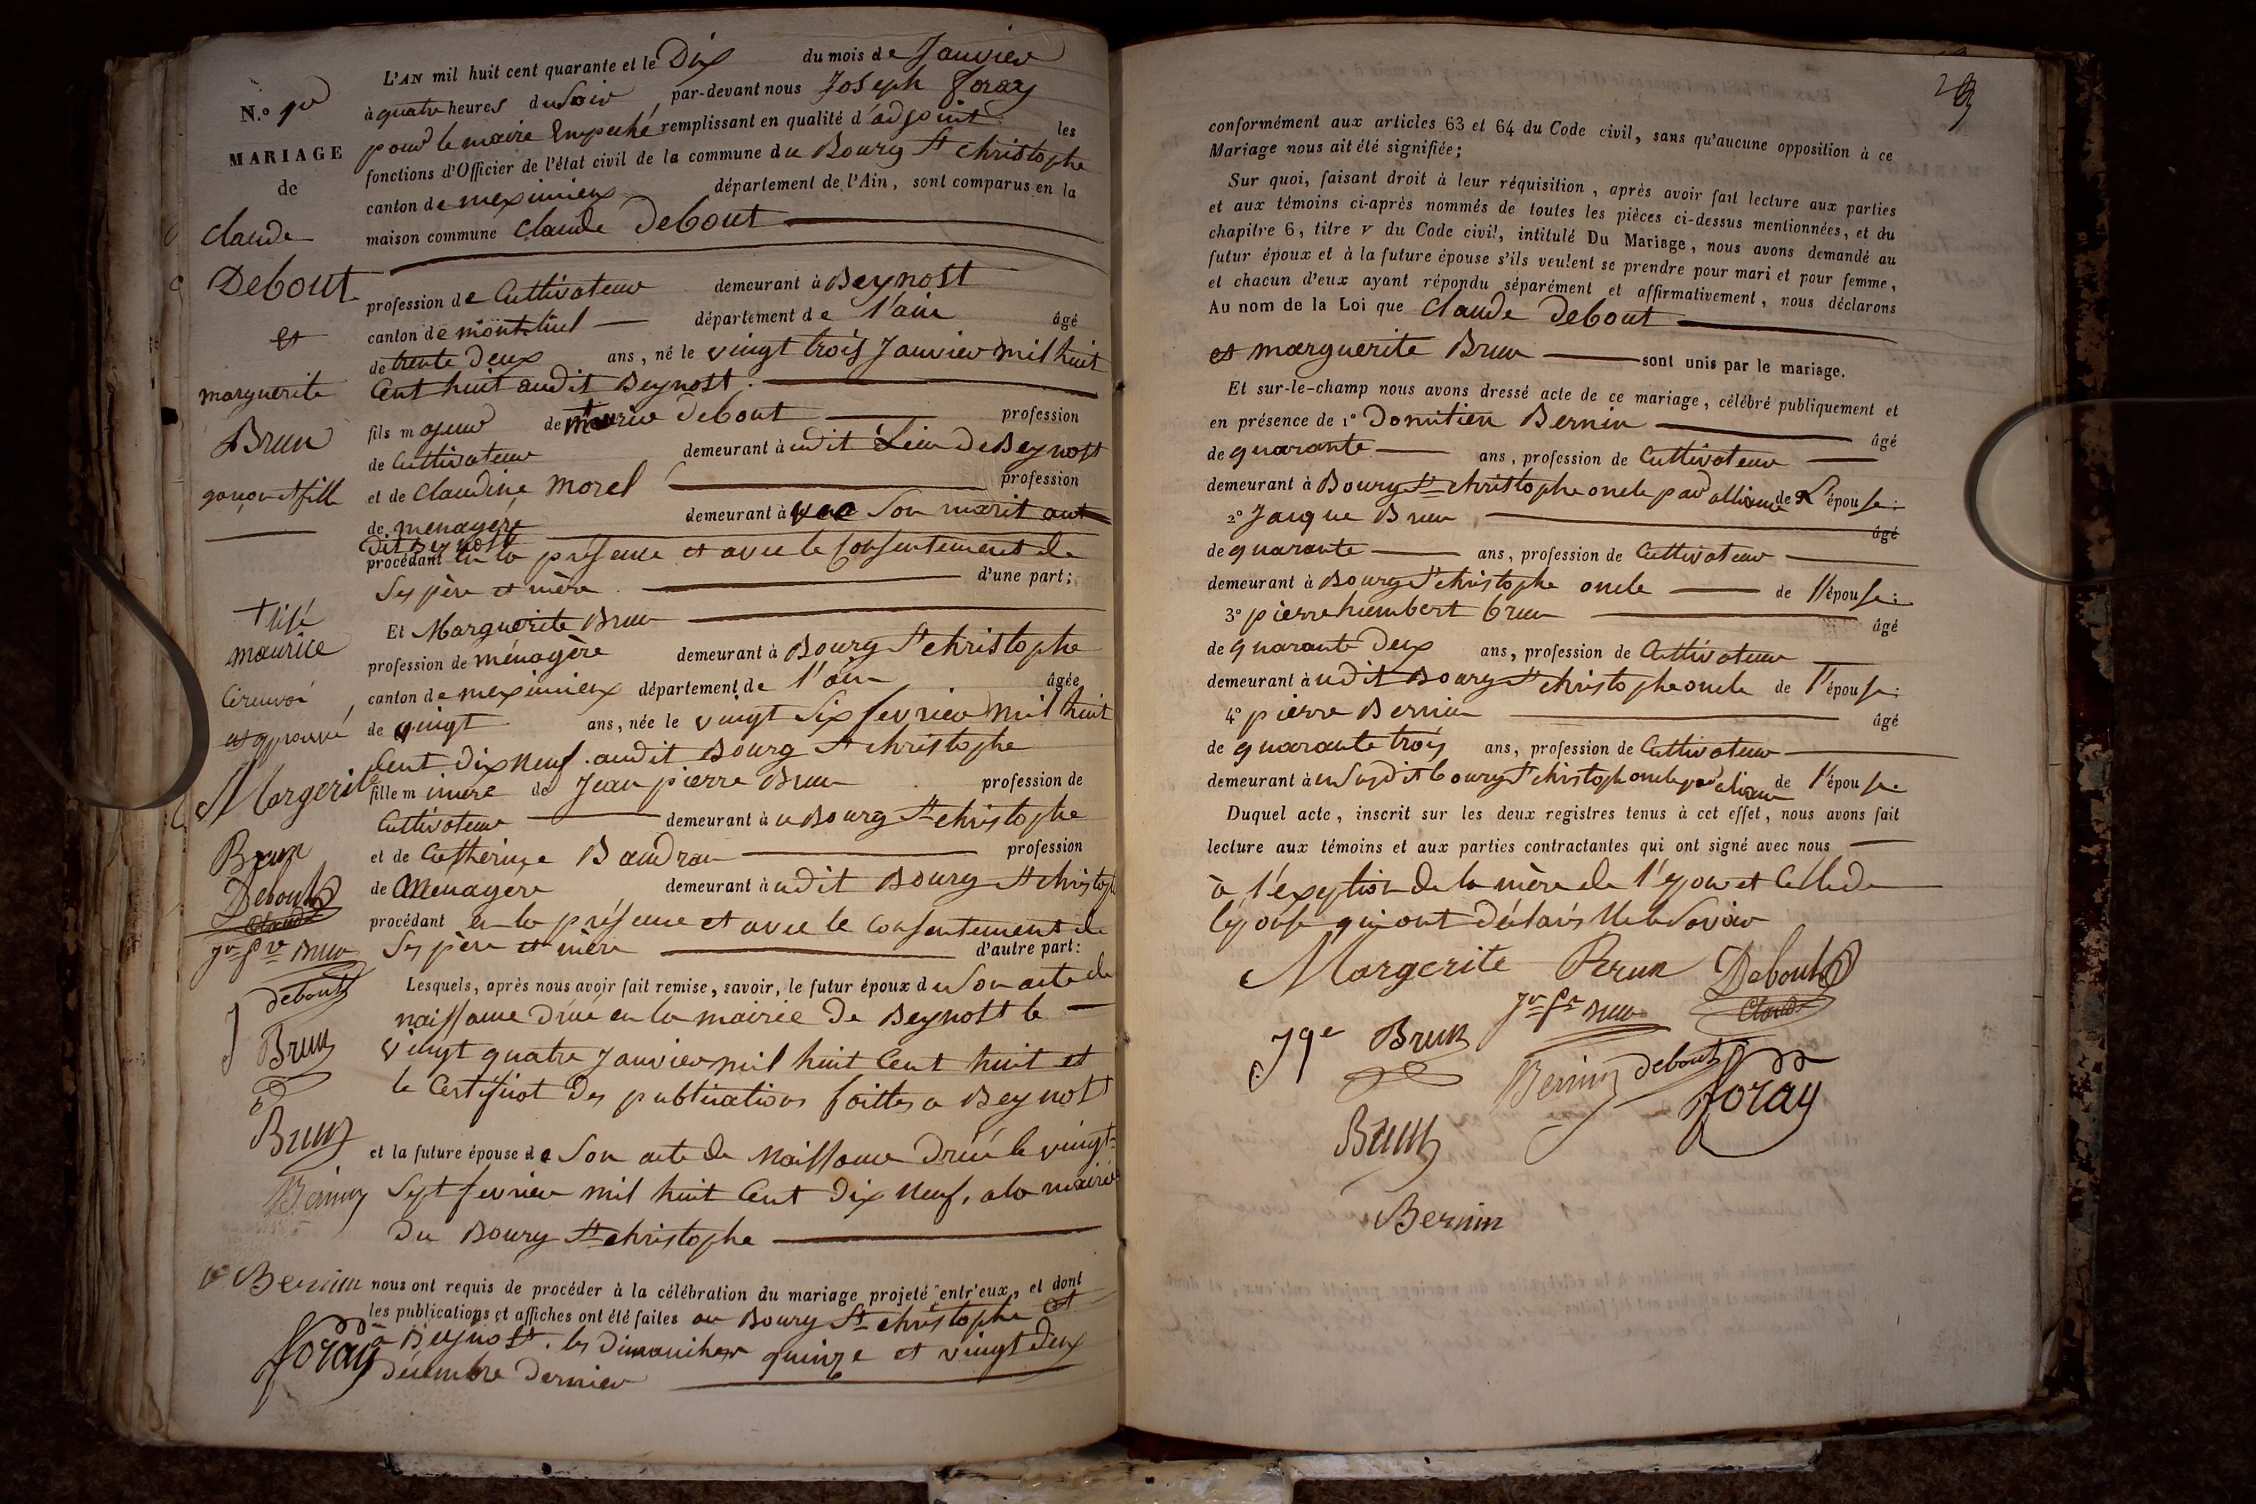 N.o 1er
MARIAGE
de
Claude
Debout
et
marguerite
Brun
garçon et fille
+ lisé
maurice
le renvoi
approuvé
Margerite
Brun
Debout
Claude
Jn Pre Brun
debout
J Brun
Brun
Bernin
Bernin
foray
L'AN mil huit cent quarante et le Dix du mois de Janvier
à quatre heures du Soir, par-devant nous Joseph foray
pour le maire Empeché remplissant en qualité d'adjoint les
fonctions d'Officier de l'état civil de la commune du Bourg St christophe
canton de meximieux département de l'Ain, sont comparus en la
maison commune Claude Debout
profession de Cultivateur demeurant à Beynost
canton de montluel département de l'ain âgé
de trente deux ans, né le vingt trois Janvier mil huit
Cent huit audit Beynost.
fils majeur de + Debout profession
de Cultivateur demeurant audit Lieu De Beynost
et de Claudine morel profession
de menagère demeurant avec Son marit au
dit Beynost
procédant en la présence et avec le Consentement de
Ses père et mère d'une part;
Et Marguerite Brun
profession de ménagère demeurant à Bourg St christophe
canton de meximieux département de l'ain âgée
de vingt ans, née le vingt Six fevrier mil huit
Cent Dix Neuf. audit Bourg St christophe
fille mineure de Jean pierre Brun profession de
Cultivateur demeurant au Bourg St christophe
et de Catherine Baudran profession
de Menagère demeurant audit Bourg St christophe
procédant en la présence et avec le consentement de
Ses père et mère d'autre part:
Lesquels, après nous avoir fait remise, savoir, le futur époux du Son acte de
naissance Dréé en la mairie De Beynost le
vingt quatre Janvier mil huit Cent huit et
le Certificat Des publications faittes a Beynost
et la future épouse de Son acte de Naissance Dréé le vingt-
Sept fevrier mil huit Cent Dix Neuf, a la mairie
Du Bourg St christophe
nous ont requis de procéder à la célébration du mariage projeté entr'eux, et dont
les publications et affiches ont été faites au Bourg St christophe et
a Beynost. les Dimanches quinze et vingt Deux
Décembre Dernier
conformément aux articles 63 et 64 du Code civil, sans qu'aucune opposition à ce
Mariage nous ait été signifiée;
Sur quoi, faisant droit à leur réquisition, après avoir fait lecture aux parties
et aux témoins ci-après nommés de toutes les pièces ci-dessus mentionnées, et du
chapitre 6, titre v du Code civil, intitulé Du Mariage, nous avons demandé au
futur époux et à la future épouse s'ils veulent se prendre pour mari et pour femme,
et chacun d'eux ayant répondu séparément et affirmativement, nous déclarons
Au nom de la Loi que Claude Debout
et marguerite Brun sont unis par le mariage.
Et sur-le-champ nous avons dressé acte de ce mariage, célébré publiquement et
en présence de 1° Domitien Bernin âgé
de quarante ans, profession de Cultivateur
demeurant à Bourg St christophe oncle par alliance de L'épouse:
2° Jacque Brun âgé
de quarante ans, profession de Cultivateur
demeurant à Bourg St christophe oncle de l'épouse:
3° pierre humbert brun âgé
de quarante Deux ans, profession de Cultivateur
demeurant audit Bourg St christophe oncle de l'épouse:
4° pierre Bernin âgé
de quarante trois ans, profession de Cultivateur
demeurant au Susdit bourg St christoph oncle par aliance de l'épouse.
Duquel acte, inscrit sur les deux registres tenus à cet effet, nous avons fait
lecture aux témoins et aux parties contractantes qui ont signé avec nous
à l'exeption de la mère de l'epoux et Celle de
l'epouse qui ont Déclarés Ne le Savoir
Margerite Brun Debout
Claude
Jn Pre Brun
Jqe Brun
Bernin debout
foray
Brun
Bernin